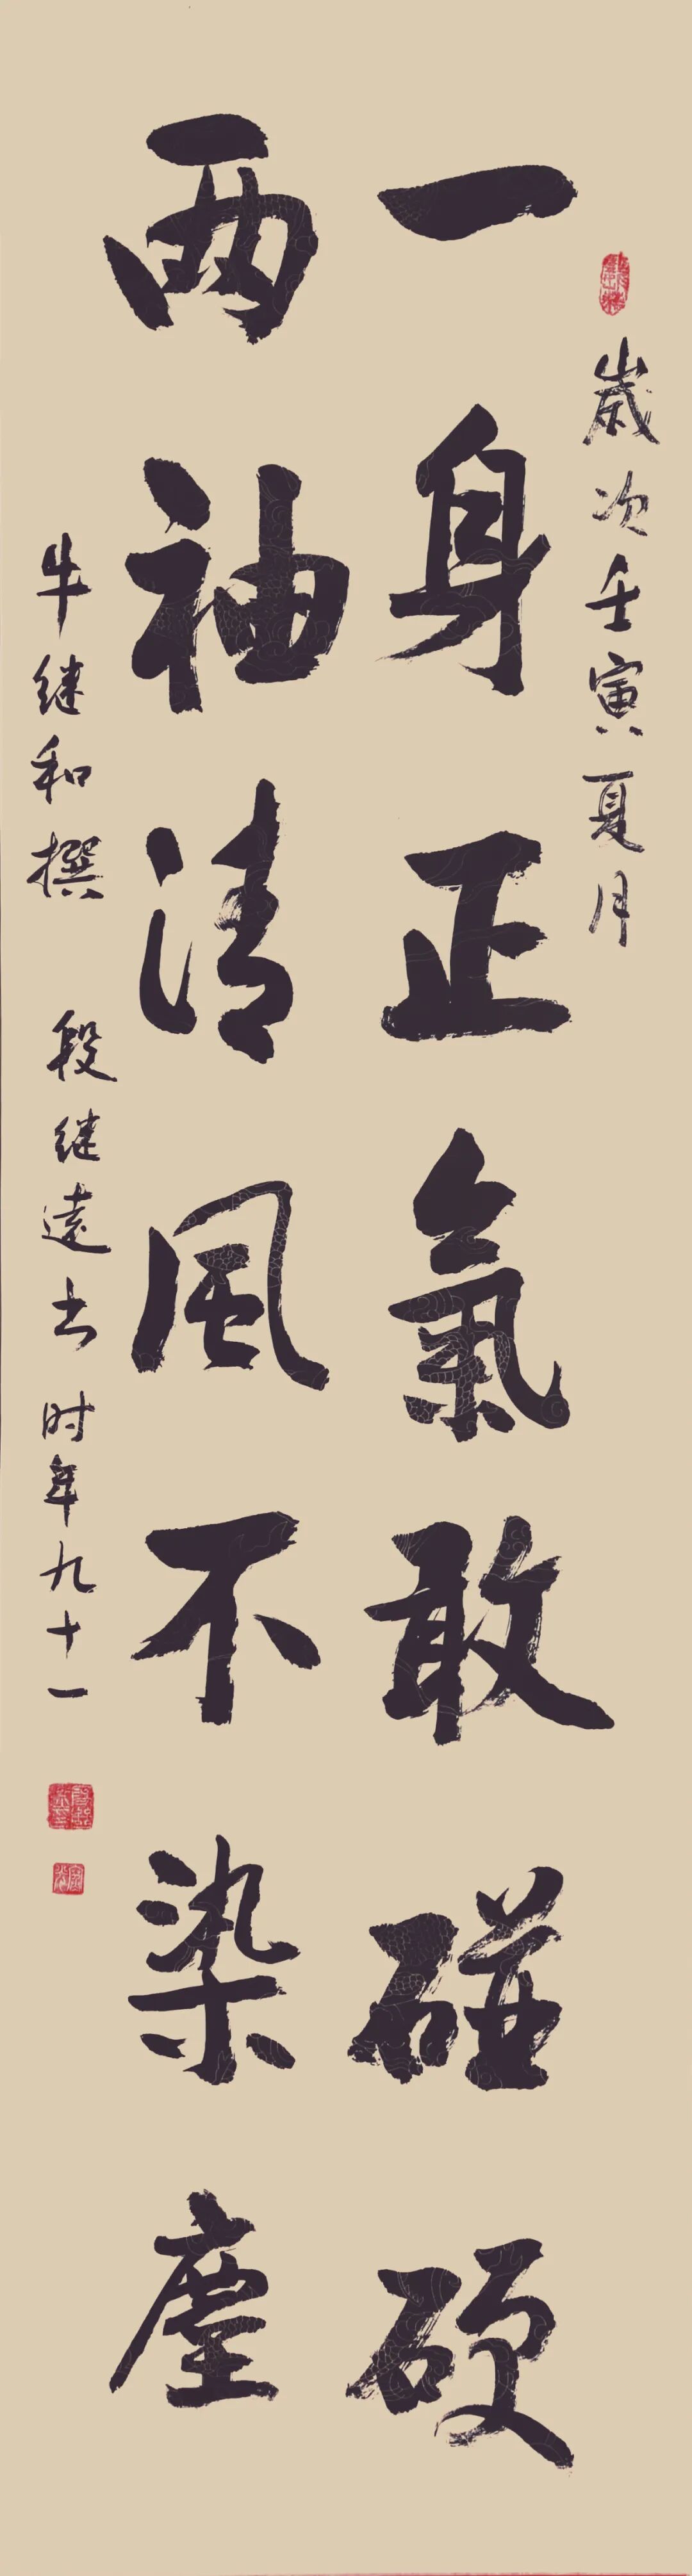 歲次壬寅夏月
一身正氣敢碰硬
兩袖清風不染塵
牛继和撰 段继遠书时年九十一